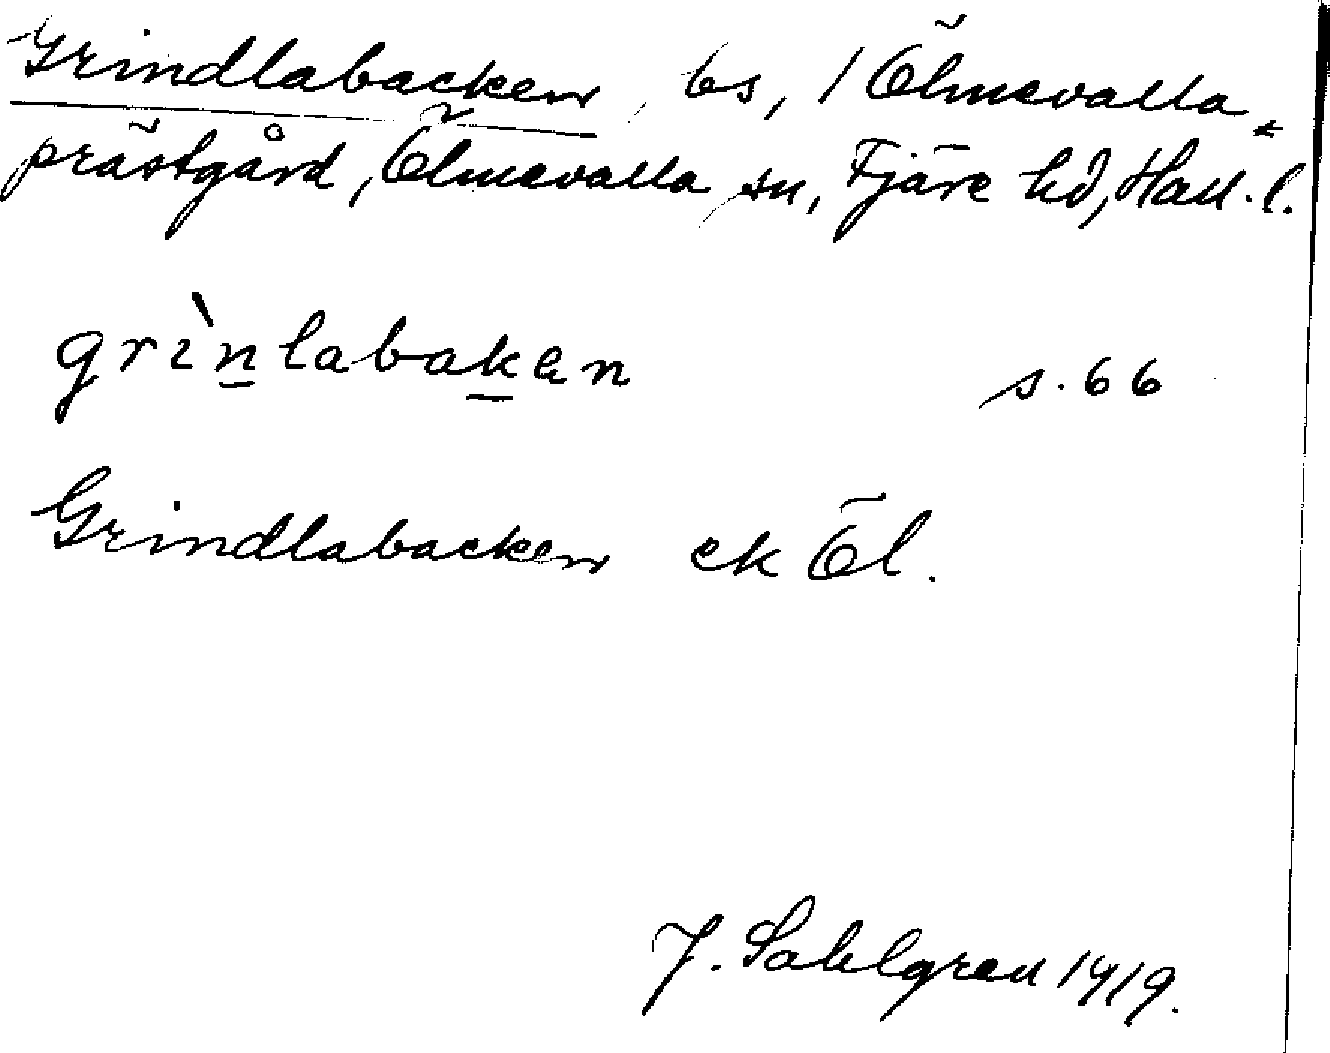 Grindlabacken, bs, / Ölmevalla
prästgård, Ölmevalla sn, Fjäre hd, Hall. l.
grìnlabaken s. 66
Grindlabacken ek Öl.
J. Sahlgren 1919.